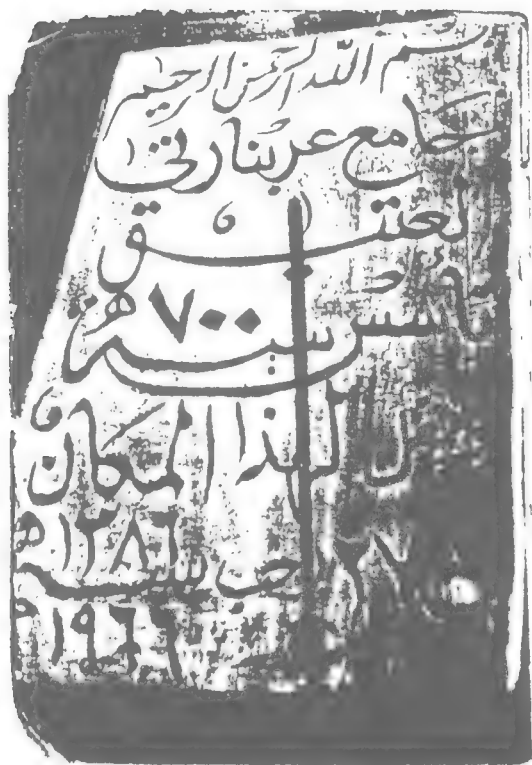 بسم الله الرحمن الرحيم
جامع عربنارتي
العتيق
تأسس سنة ٧٠٠ هـ
هذا المكان
رجب سنة ١٣٨٦ هـ
١٩٦٦ م